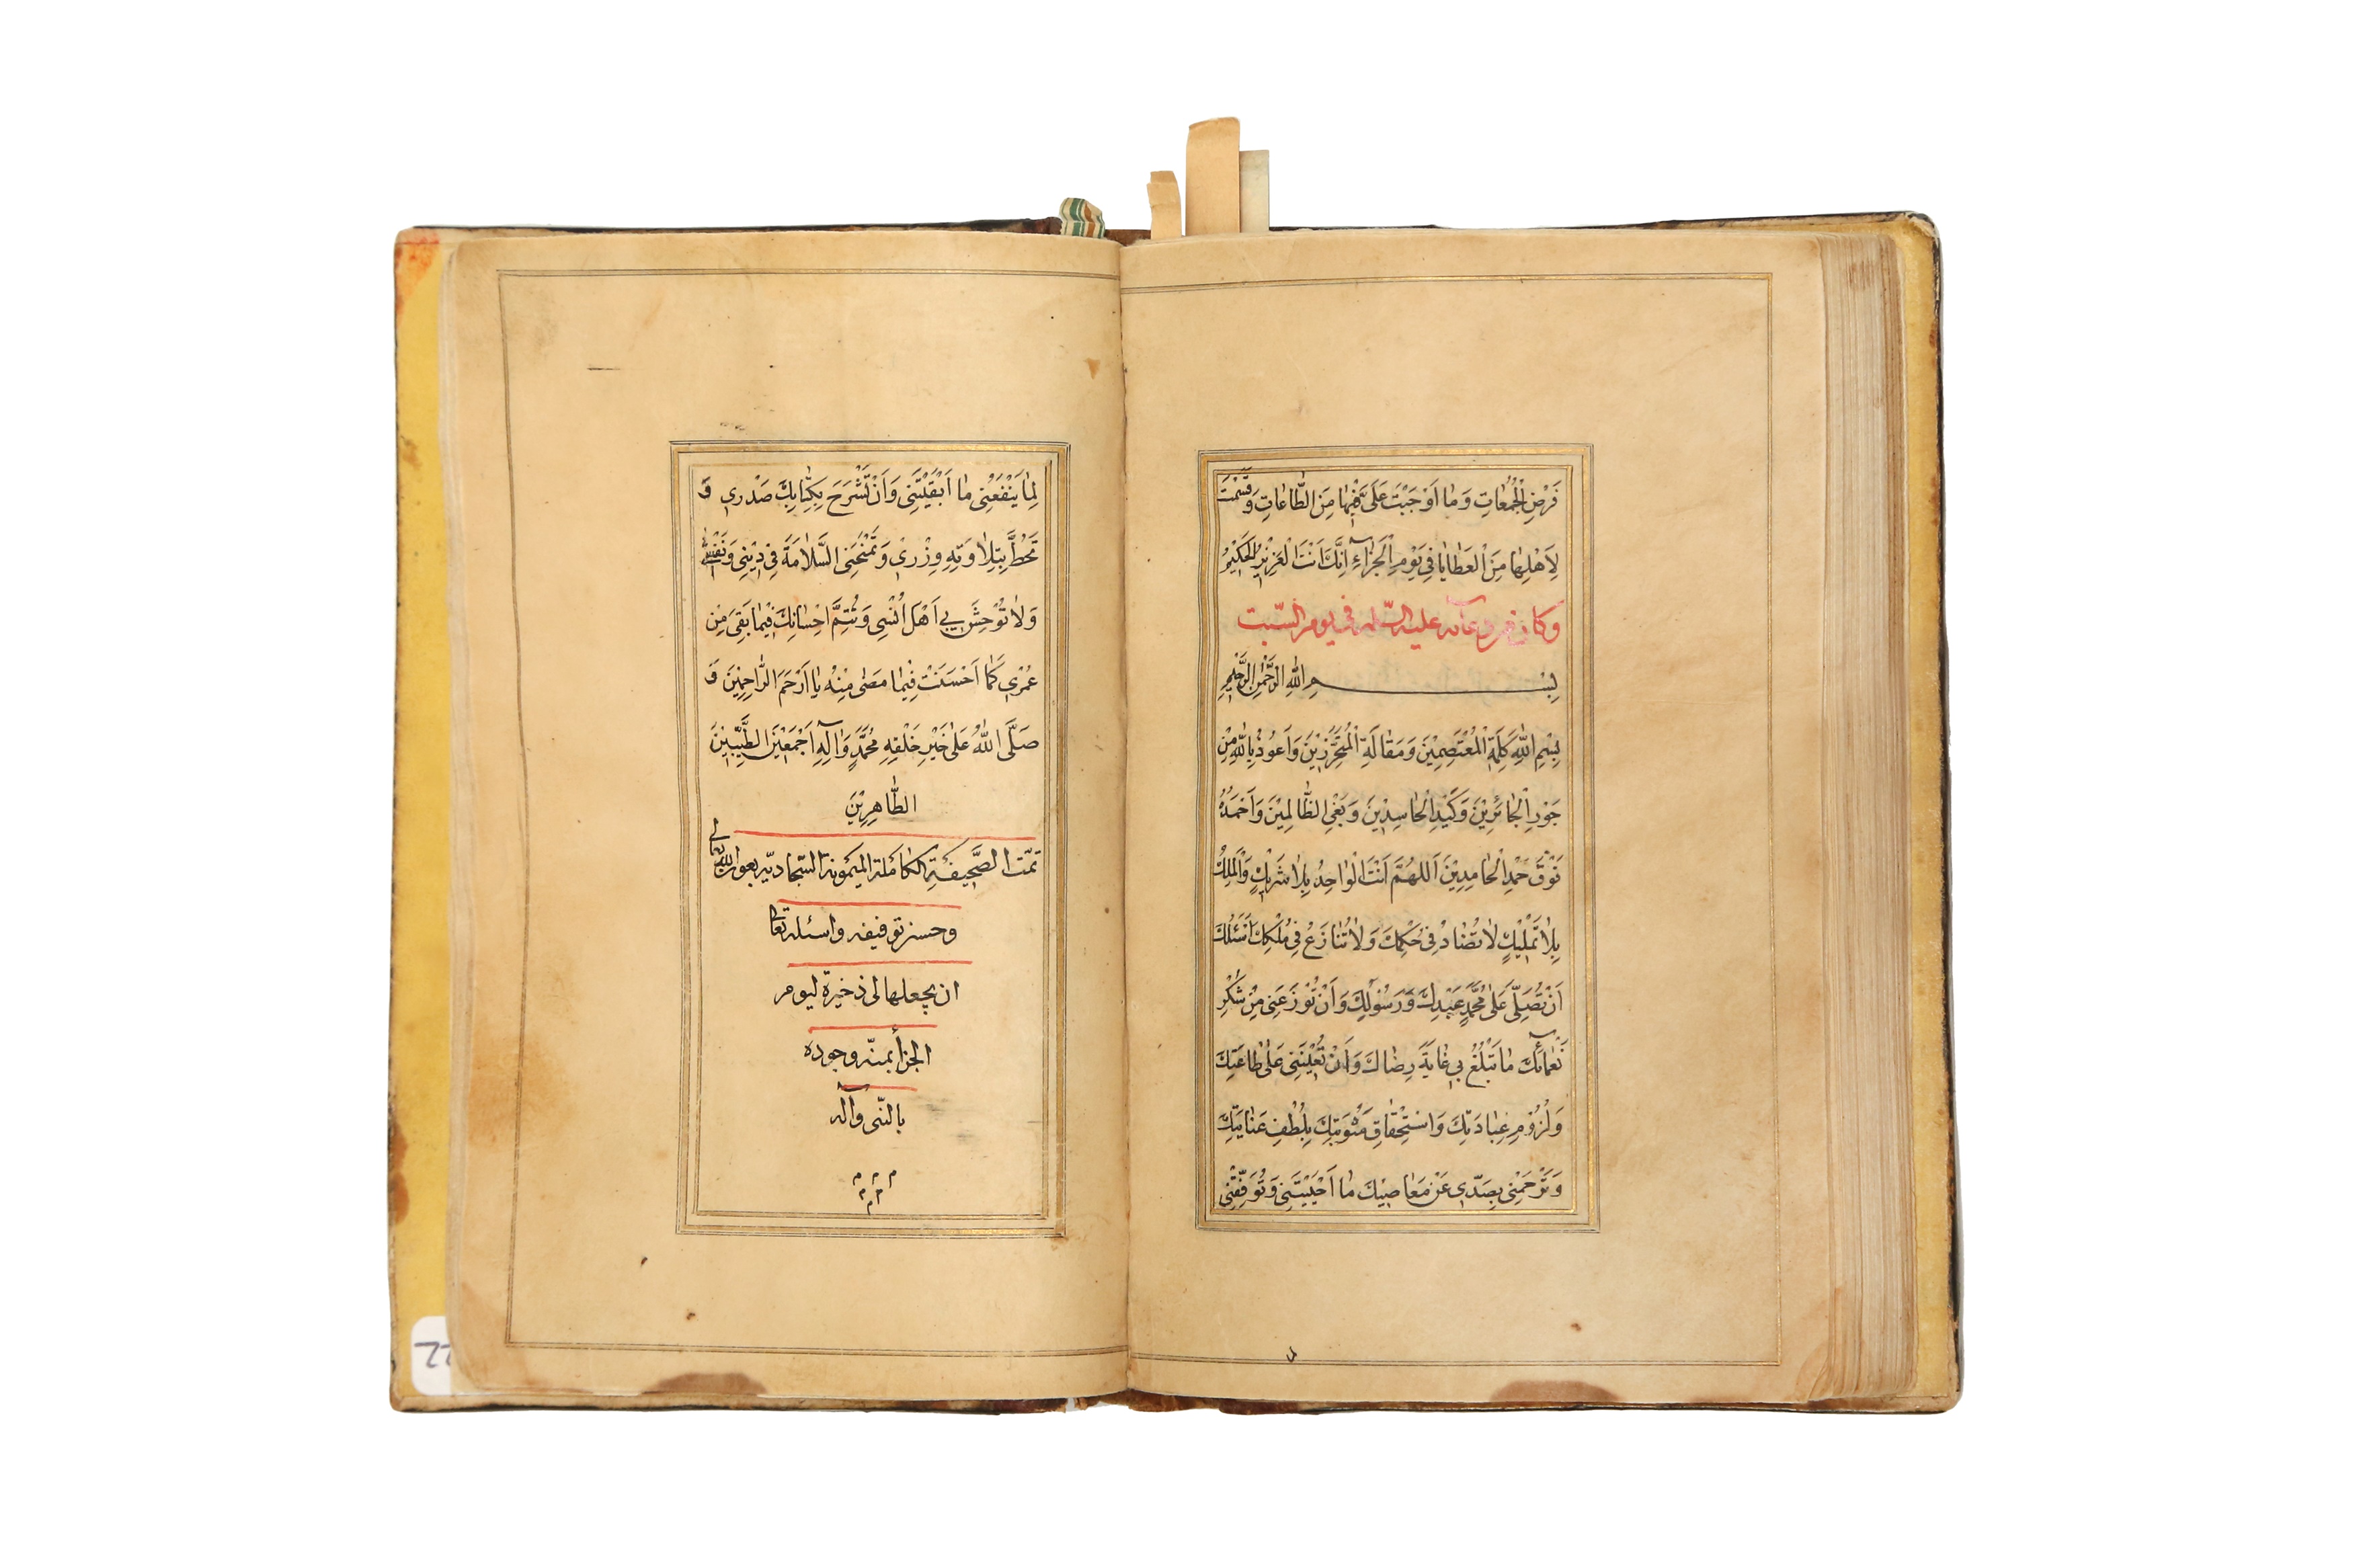 فَرْضِ الْجُمُعَاتِ وَمَا اَوْجَبْتَ عَلَىَّ فِيْهَا مِنَ الطَّاعَاتِ وَقَسَمْتَ
لِاَهْلِهَا مِنَ الْعَطَايَا فِي يَوْمِ الْجَزَاۤءِ اِنَّكَ اَنْتَ الْعَزِيْزُ الْحَكِيْمُ
وكان من دعآئه عليه السّلام في يوم السّبت
بِسْمِ اللهِ الرَّحْمٰنِ الرَّحِيْمِ
بِسْمِ اللهِ كَلِمَةِ الْمُعْتَصِمِيْنَ وَمَقَالَةِ الْمُتَحَرِّزِيْنَ وَاَعُوْذُ بِاللهِ مِنْ
جَوْرِ الْجَائِرِيْنَ وَكَيْدِ الْحَاسِدِيْنَ وَبَغْيِ الظَّالِمِيْنَ وَاَحْمَدُهُ
فَوْقَ حَمْدِ الْحَامِدِيْنَ اَللّهُمَّ اَنْتَ الْوَاحِدُ بِلَا شَرِيْكٍ وَالْمَلِكُ
بِلَا تَمْلِيْكٍ لَا تُضَادُّ فِي حُكْمِكَ وَلَا تُنَازَعُ فِي مُلْكِكَ اَسْئَلُكَ
اَنْ تُصَلِّىَ عَلَى مُحَمَّدٍ عَبْدِكَ وَرَسُوْلِكَ وَاَنْ تُوْزِعَنِى مِنْ شُكْرِ
نَعْمَاۤئِكَ مَا تَبْلُغُ بِي غَايَةَ رِضَاكَ وَاَنْ تُعِيْنَنِى عَلَى طَاعَتِكَ
وَلُزُوْمِ عِبَادَتِكَ وَاسْتِحْقَاقِ مَثُوْبَتِكَ بِلُطْفِ عِنَايَتِكَ
وَتَرْحَمْنِى بِصَدِّى عَنْ مَعَاصِيْكَ مَا اَحْيَيْتَنِى وَتُوَفِّقَنِى
لِمَا يَنْفَعُنِى مَا اَبْقَيْتَنِى وَاَنْ تَشْرَحَ بِكِتَابِكَ صَدْرِى وَ
تَحُطَّ بِتِلَاوَتِهِ وِزْرِى وَتَمْنَحَنِى السَّلَامَةَ فِي دِيْنِى وَنَفْسِى
وَلَا تُوْحِشَ بِي اَهْلَ اُنْسِى وَتُتِمَّ اِحْسَانَكَ فِيْمَا بَقِىَ مِنْ
عُمْرِى كَمَا اَحْسَنْتَ فِيْمَا مَضَى مِنْهُ يَا اَرْحَمَ الرَّاحِمِيْنَ وَ
صَلَّى اللهُ عَلَى خَيْرِ خَلْقِهِ مُحَمَّدٍ وَاٰلِهِ اَجْمَعِيْنَ الطَّيِّبِيْنَ
الطَّاهِرِيْنَ
تمّت الصَّحِيفَةِ الكاملة الميمونة السّجاديّه بعون الله تعالى
وحسن توفيقه واسئله تعالى
ان يجعلها لى ذخيرة ليوم
الجزأ بمنّه وجوده
بالنّبى وآله
م م م
م م
م
22